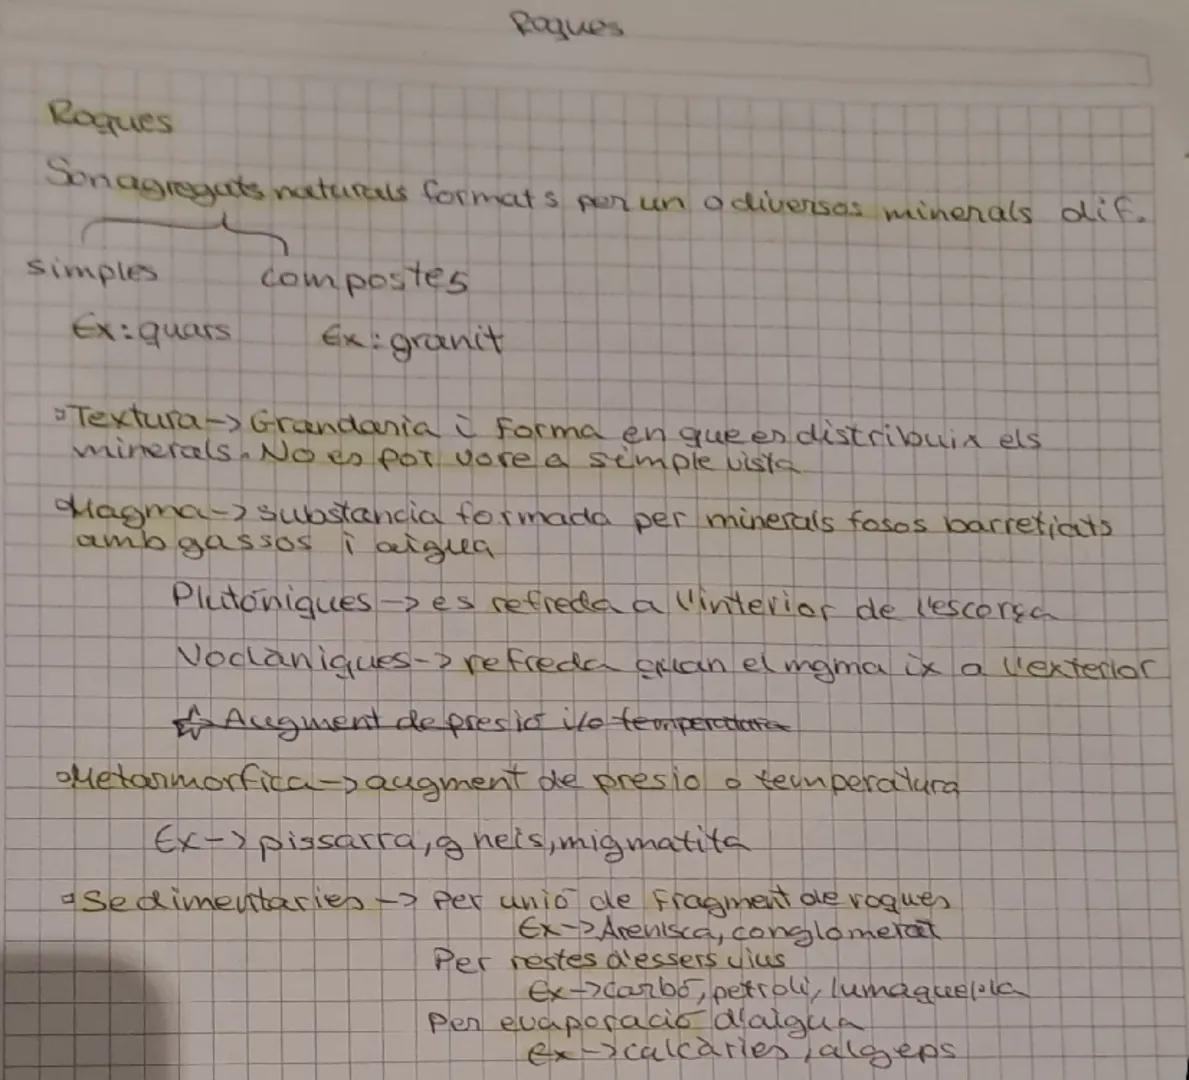 Roques
Roques
Son agregats naturals formats per un o diversos minerals dif.
simples compostes
Ex: quars Ex: granit
Textura -> Grandaria i forma en que es distribuix els
minerals. No es pot vore a simple vista
Magma -> substancia formada per minerals fosos barretjats
amb gassos i aigua
Plutóniques -> es refreda a l'interior de l'escorça
Voclaniques -> refreda quan el mgma ix a l'exterior
Augment de presió i/o temperatura
Metarmorfica -> augment de presio o temperatura
Ex -> pissarra, gneis, migmatita
Sedimentaries -> Per unió de fragment de roques
Ex -> Arenisca, conglomerat
Per restes d'essers vius
Ex -> carbó, petroli, lumaquel·la
Per evaporació d'aigua
ex -> calcaries, algeps